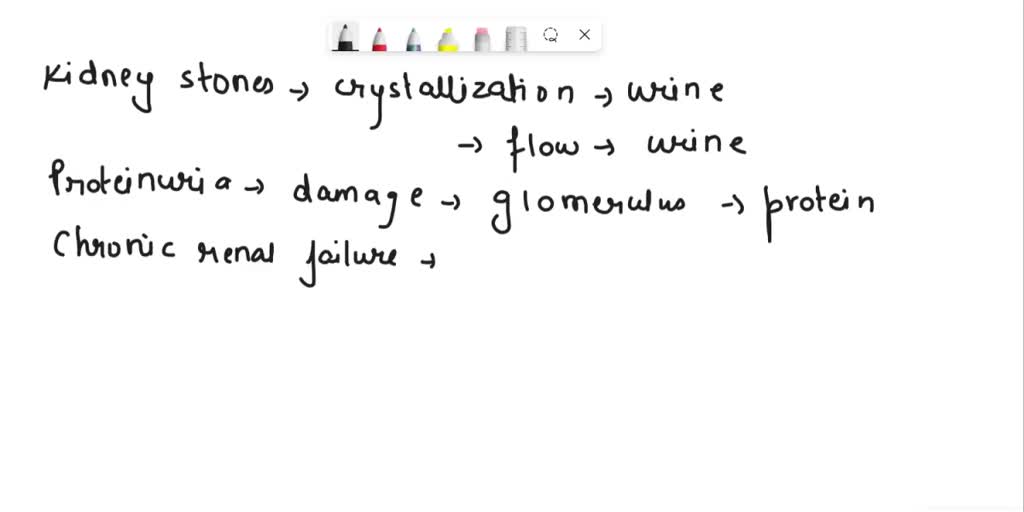 Kidney stones → crystallization → urine
→ flow → urine
Proteinuria → damage → glomerulus → protein
Chronic renal failure →